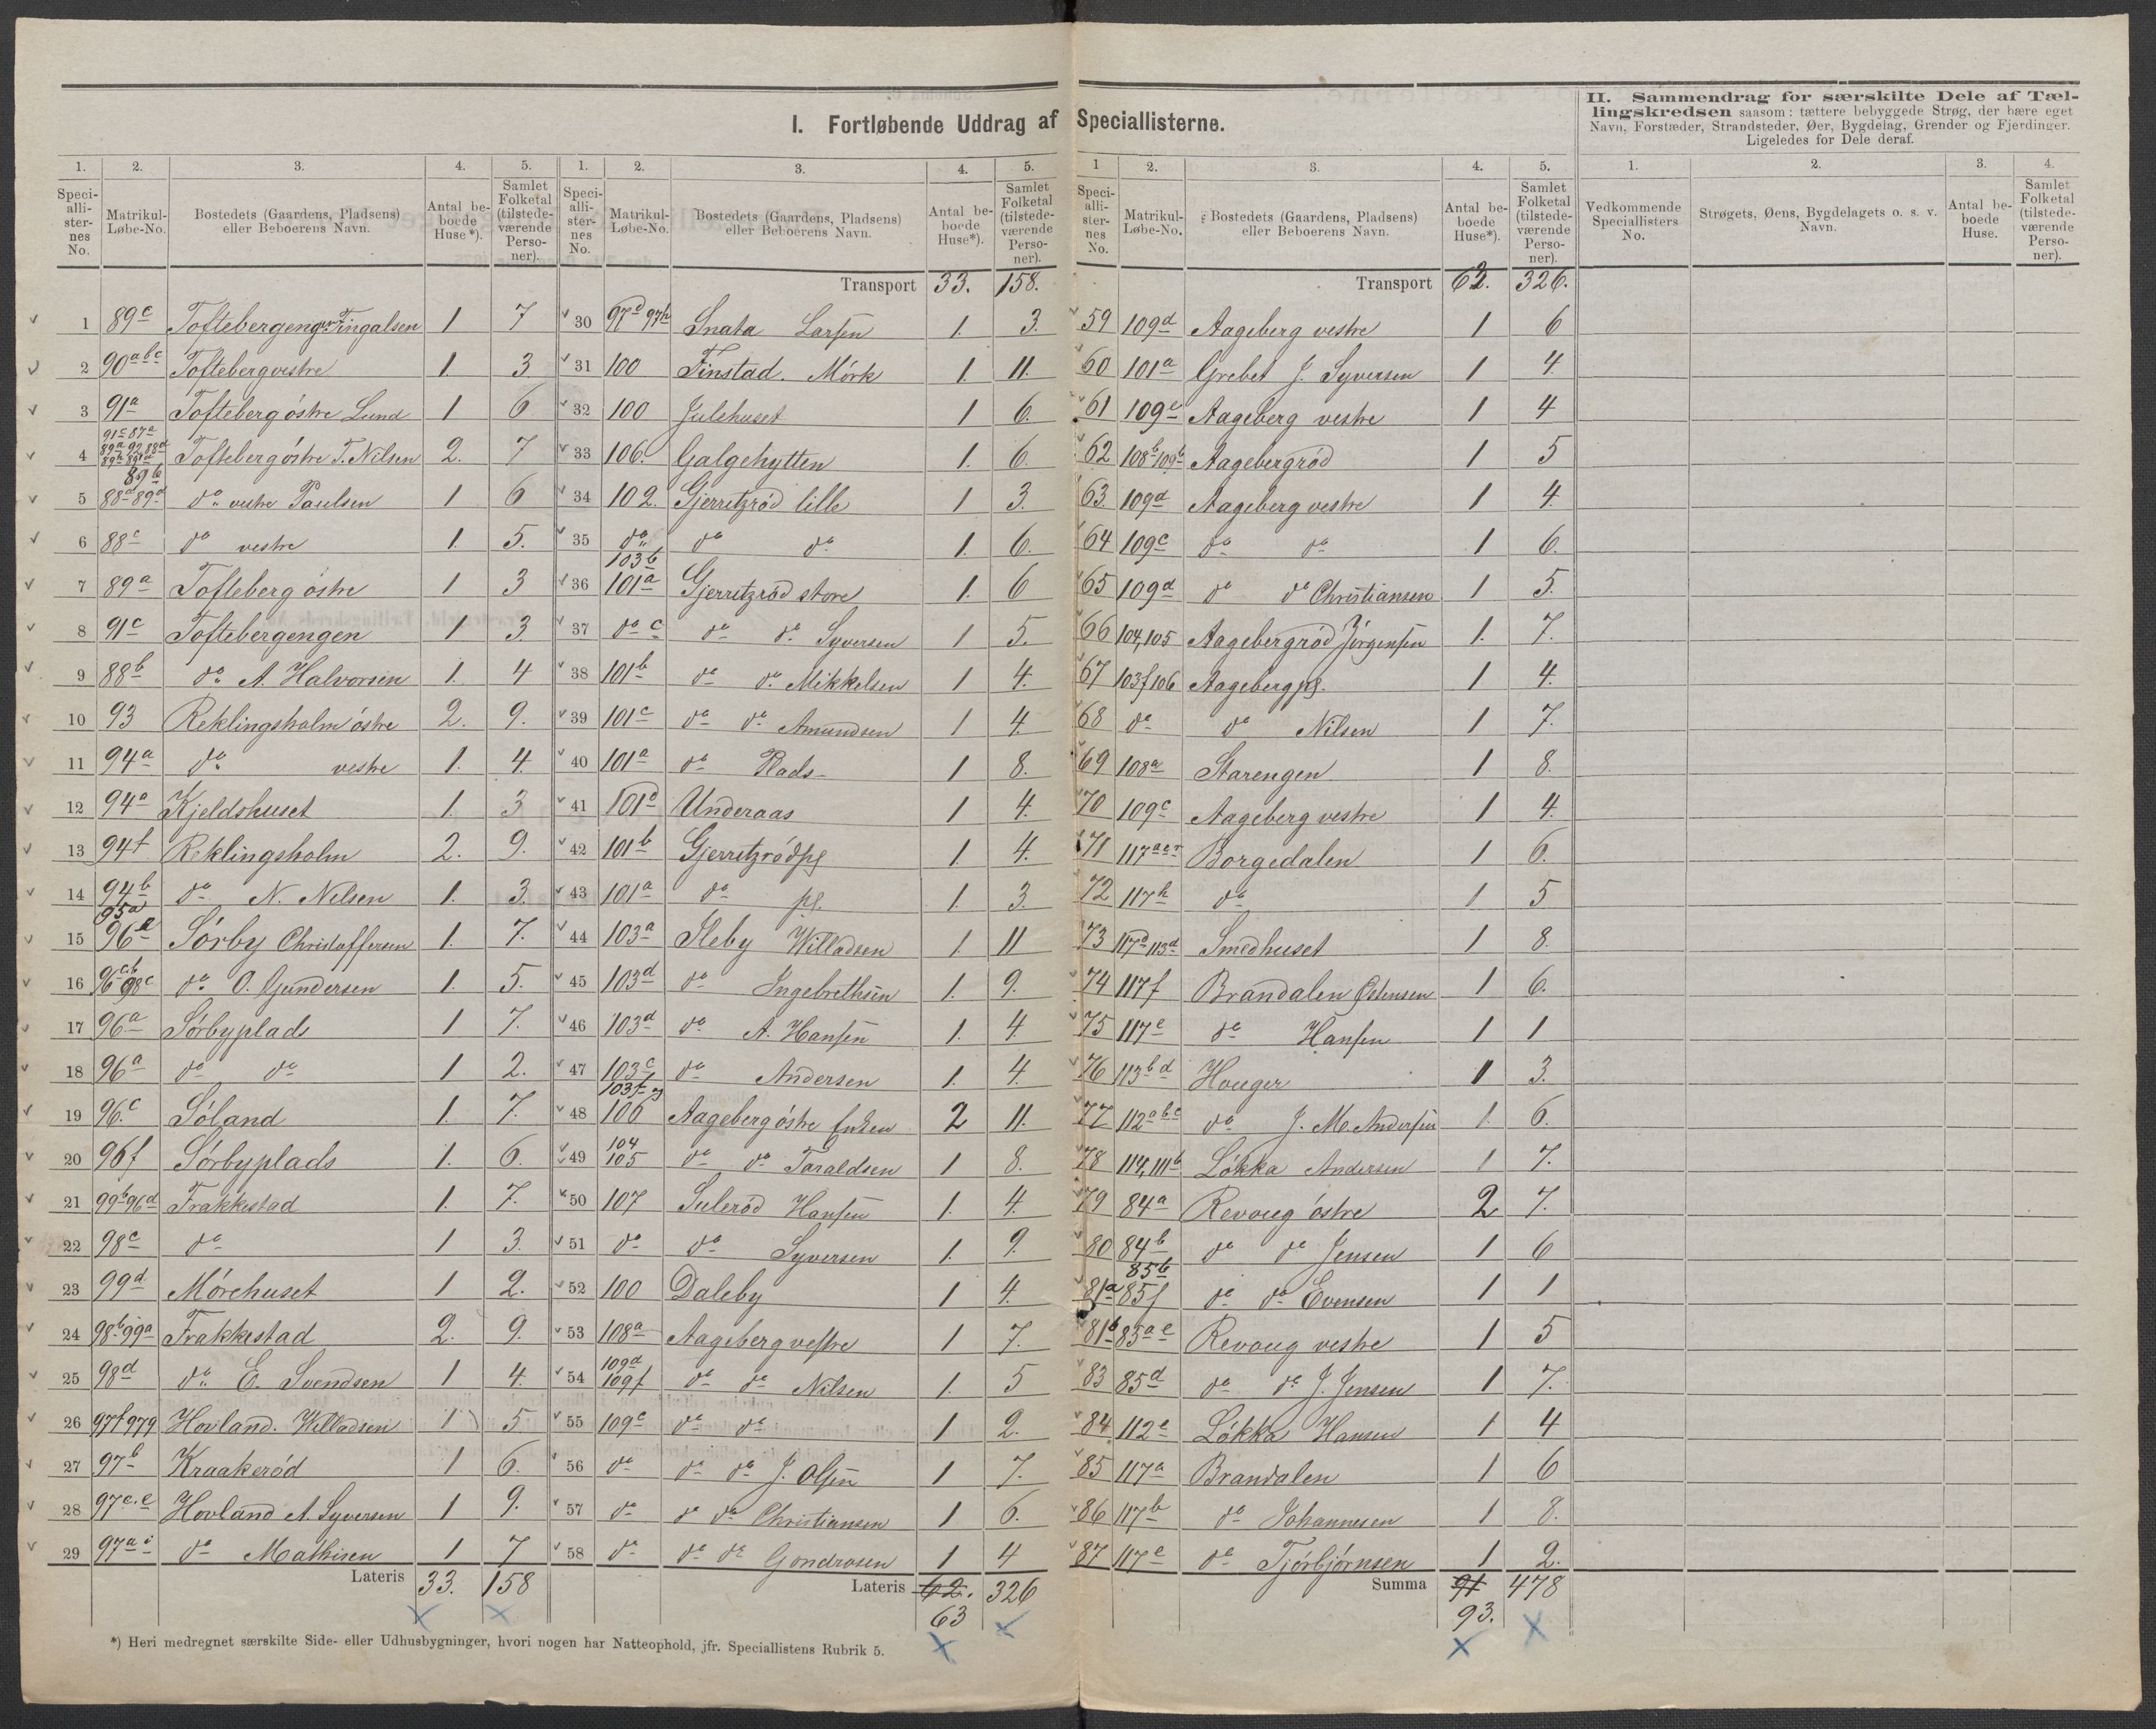 I. Fortløbende Uddrag af Speciallisterne.
II. Sammendrag for særskilte Dele af Tæl-
lingskredsen saasom: tættere bebyggede Strøg, der bære eget
Navn, Forstæder, Strandsteder, Øer, Bygdelag, Grender og Fjerdinger.
Ligeledes for Dele deraf.
1. 2. 3. 4. 5.
Speci-alli-ster-nes No. Matrikul-Løbe-No. Bostedets (Gaardens, Pladsens) eller Beboerens Navn. Antal be-boede Huse*). Samlet Folketal (tilstede-værende Perso-ner).
1 89c Toftebergengen Tingalsen 1 7
2 90abc Toftebergvestre 1. 3
3 91a Tofteberg östre Lund 1 6
4 91c 87a 89a 92 88d 89h 89b Tofteberg östre T. Nilsen 2. 7
5 88d 89d do vestre Paulsen 1 6
6 88c do vestre 1. 5.
7 89a Tofteberg östre 1 3
8 91c Toftebergengen 1 3
9 88b do A. Halvorsen 1. 4
10 93 Reklingsholm östre 2. 9.
11 94a do vestre 1. 4.
12 94a Kjeldshuset 1. 3
13 94f Reklingsholm 2. 9.
14 94b do N. Nilsen 1. 3.
15 95a 96e Sörby Christoffersen 1. 7.
16 96cb 98c do O. Gundersen 1. 5.
17 96a Sörbyplads 1 7.
18 96a do do 1 2.
19 96c Söland 1. 7.
20 96f Sörbyplads 1. 6.
21 99b 96d Frakkestad 1. 7.
22 98c do 1 3.
23 99d Mörehuset 1 2.
24 98b 99a Frakkestad 2. 9.
25 98d do E. Svendsen 1 4.
26 97f 97g Hovland. Willadsen 1 5
27 97b Kraakeröd 1 6.
28 97c.e Hovland A. Syversen 1 9.
29 97a i do Mathisen 1 7
Lateris 33. 158
1. 2. 3. 4. 5.
Speci-alli-ster-nes No. Matrikul-Løbe-No. Bostedets (Gaardens, Pladsens) eller Beboerens Navn. Antal be-boede Huse*). Samlet Folketal (tilstede-værende Perso-ner).
Transport 33. 158.
30 97d 97h Snata Larsen 1. 3.
31 100 Finstad. Mörk 1. 11.
32 100 Julehuset 1 6.
33 106. Galgehytten 1. 6.
34 102. Gjerretzröd lille 1 3.
35 do do do 1. 6.
36 103b 101a Gjerretzröd store 1. 6
37 do c do do Syversen 1 5.
38 101b do do Mikkelsen 1 4.
39 101c do do Amundsen 1 4.
40 101a do Plads 1 8.
41 101d Underaas 1 4.
42 101b Gjerretzrödpl 1. 4.
43 101a do pl. 1. 3.
44 103a Ileby Willadsen 1 11
45 103d do Ingebrethsen 1. 9.
46 103d do A. Hansen 1. 4.
47 103c do Andersen 1. 4.
48 103f 106 Aageberg östre Enken 2 11.
49 104 105 do do Taraldsen 1 8.
50 107 Suleröd Hansen 1. 4.
51 do do Syversen 1. 9.
52 100 Daleby 1 4.
53 108a Aageberg vestre 1 7.
54 109d 109f do do Nilsen 1. 5
55 109c do do 1 2.
56 do do do J. Olsen 1 7.
57 do do do Christiansen 1 6.
58 do do do Gondrosen 1 4
Lateris 62. 326
63
1 2. 3. 4. 5.
Speci-alli-ster-nes No. Matrikul-Løbe-No. Bostedets (Gaardens, Pladsens) eller Beboerens Navn. Antal be-boede Huse*). Samlet Folketal (tilstede-værende Perso-ner).
Transport 63. 326.
59 109d Aageberg vestre 1 6
60 101a Grebet J. Syversen 1 4.
61 109e Aageberg vestre 1 4
62 108b 109b Aagebergröd 1 5
63. 109d Aageberg vestre 1 4.
64 109c do do 1 6.
65 109d do do Christiansen 1 5.
66 104,105 Aagebergröd Jörgensen 1. 7.
67 103f 106 Aagebergpl. 1 4.
68 do do Nilsen 1 7.
69 108a Starengen 1 8.
70 109c Aageberg vestre 1 4.
71 117 Borgedalen 1 6.
72 117h do 1 5
73 117d 113d Smedhuset 1 8.
74 117f Brandalen Østensen 1 6.
75 117e do Hansen 1 1
76 113b d Houger 1 3.
77 112abc do J. M. Andersen 1. 6.
78 114, 111b Lökka Andersen 1 7.
79 84a Revoug östre 2 7.
80 84b do do Jensen 1 6
81a 85b 85f do do Evensen 1 1
81b 85a e Revoug vestre 1 5
83 85d do do J. Jensen 1 7.
84 112e Lökka Hansen 1 4
85 117a Brandalen 1 6
86 117b do Johannesen 1 8.
87 117e do Tjörbjörnsen 1 2.
Summa 91 478
93.
1. 2. 3. 4.
Vedkommende Speciallisters No. Strøgets, Øens, Bygdelagets o. s. v. Navn. Antal be-boede Huse. Samlet Folketal (tilstede-værende Perso-ner).
*) Heri medregnet særskilte Side- eller Udhusbygninger, hvori nogen har Natteophold, jfr. Speciallistens Rubrik 5.